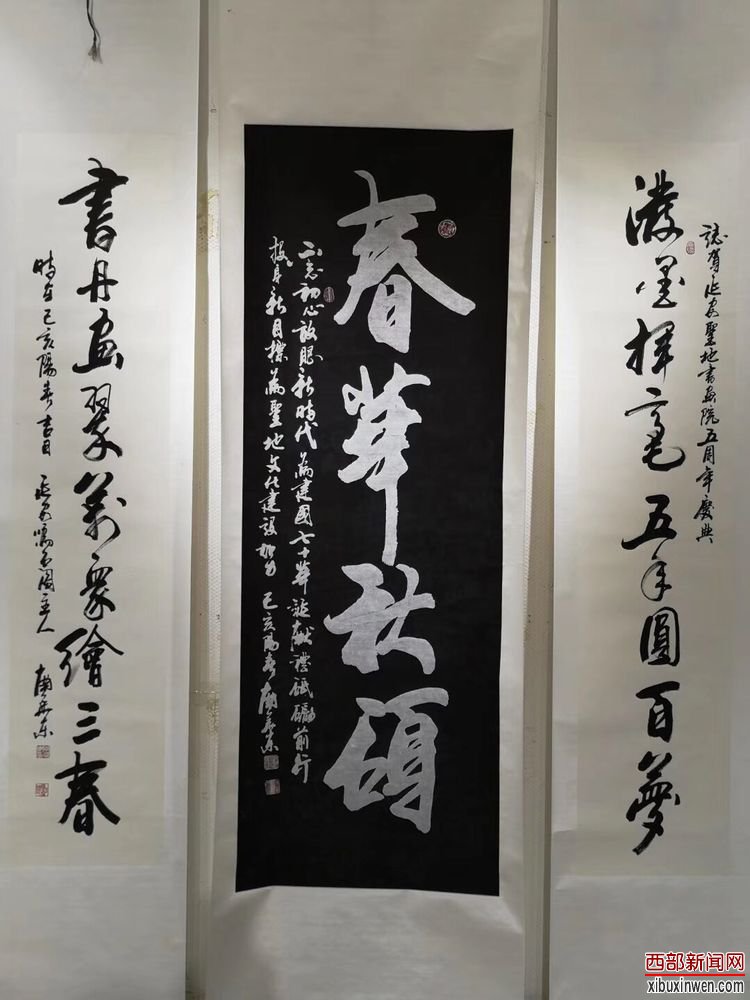 誌賀延安聖地書画院五周年慶典
潑墨揮毫五年圓百夢
春華秋頌
不忘初心放膽新時代為建國七十華誕獻禮砥礪前行
投身新目標為聖地文化建設努力 己亥陽春
書丹画翠萬眾繪三春
時在己亥陽春吉日 延安園主人
西部新闻网
xibuxinwen.com